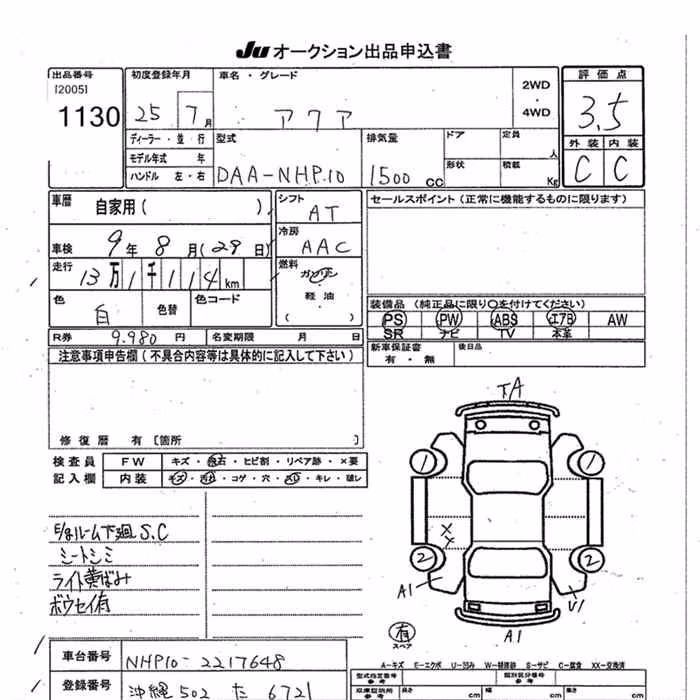 Ju オークション出品申込書
出品番号
[2005]
1130
初度登録年月
25 7月
車名・グレード
アクア
2WD
・
4WD
評価点
3.5
外装 内装
C C
ディーラー・並行
モデル年式 年
ハンドル 左・右
型式
DAA-NHP10
排気量
1500 cc
ドア
形状
定員
人
積載
Kg
車歴
自家用( )
車検 9年8月(29日)
走行 13万1千114km
色 白
色替
色コード
シフト
AT
冷房
AAC
燃料
ガソリン
軽油
( )
セールスポイント(正常に機能するものに限ります)
装備品(純正品に限り〇を付けてください)
PS PW ABS エアB AW
SR ナビ TV 本革
新車保証書
有・無
後日品
R券 9.980円
名変期限 月 日
注意事項申告欄(不具合内容等は具体的に記入して下さい)
修復歴 有〔箇所 〕
検査員
記入欄
FW キズ・飛石・ヒビ割・リペア跡・×要
内装 キズ・汚れ・コゲ・穴・スレ・キレ・破レ
E/gルーム下廻S.C
シートシミ
ライト黄ばみ
ボウセイ有
TA
1 1
X
X
2 2
A1
U1
A1
有
スペア
A−キズ E−エクボ U−凹み W−補修跡 S−サビ C−腐食 XX−交換済
車台番号 NHP10-2217648
登録番号 沖縄 502 た 6721
型式指定番号
参考
類別区分番号
参考
車庫証明用
参考
長さ cm
幅 cm
高さ cm